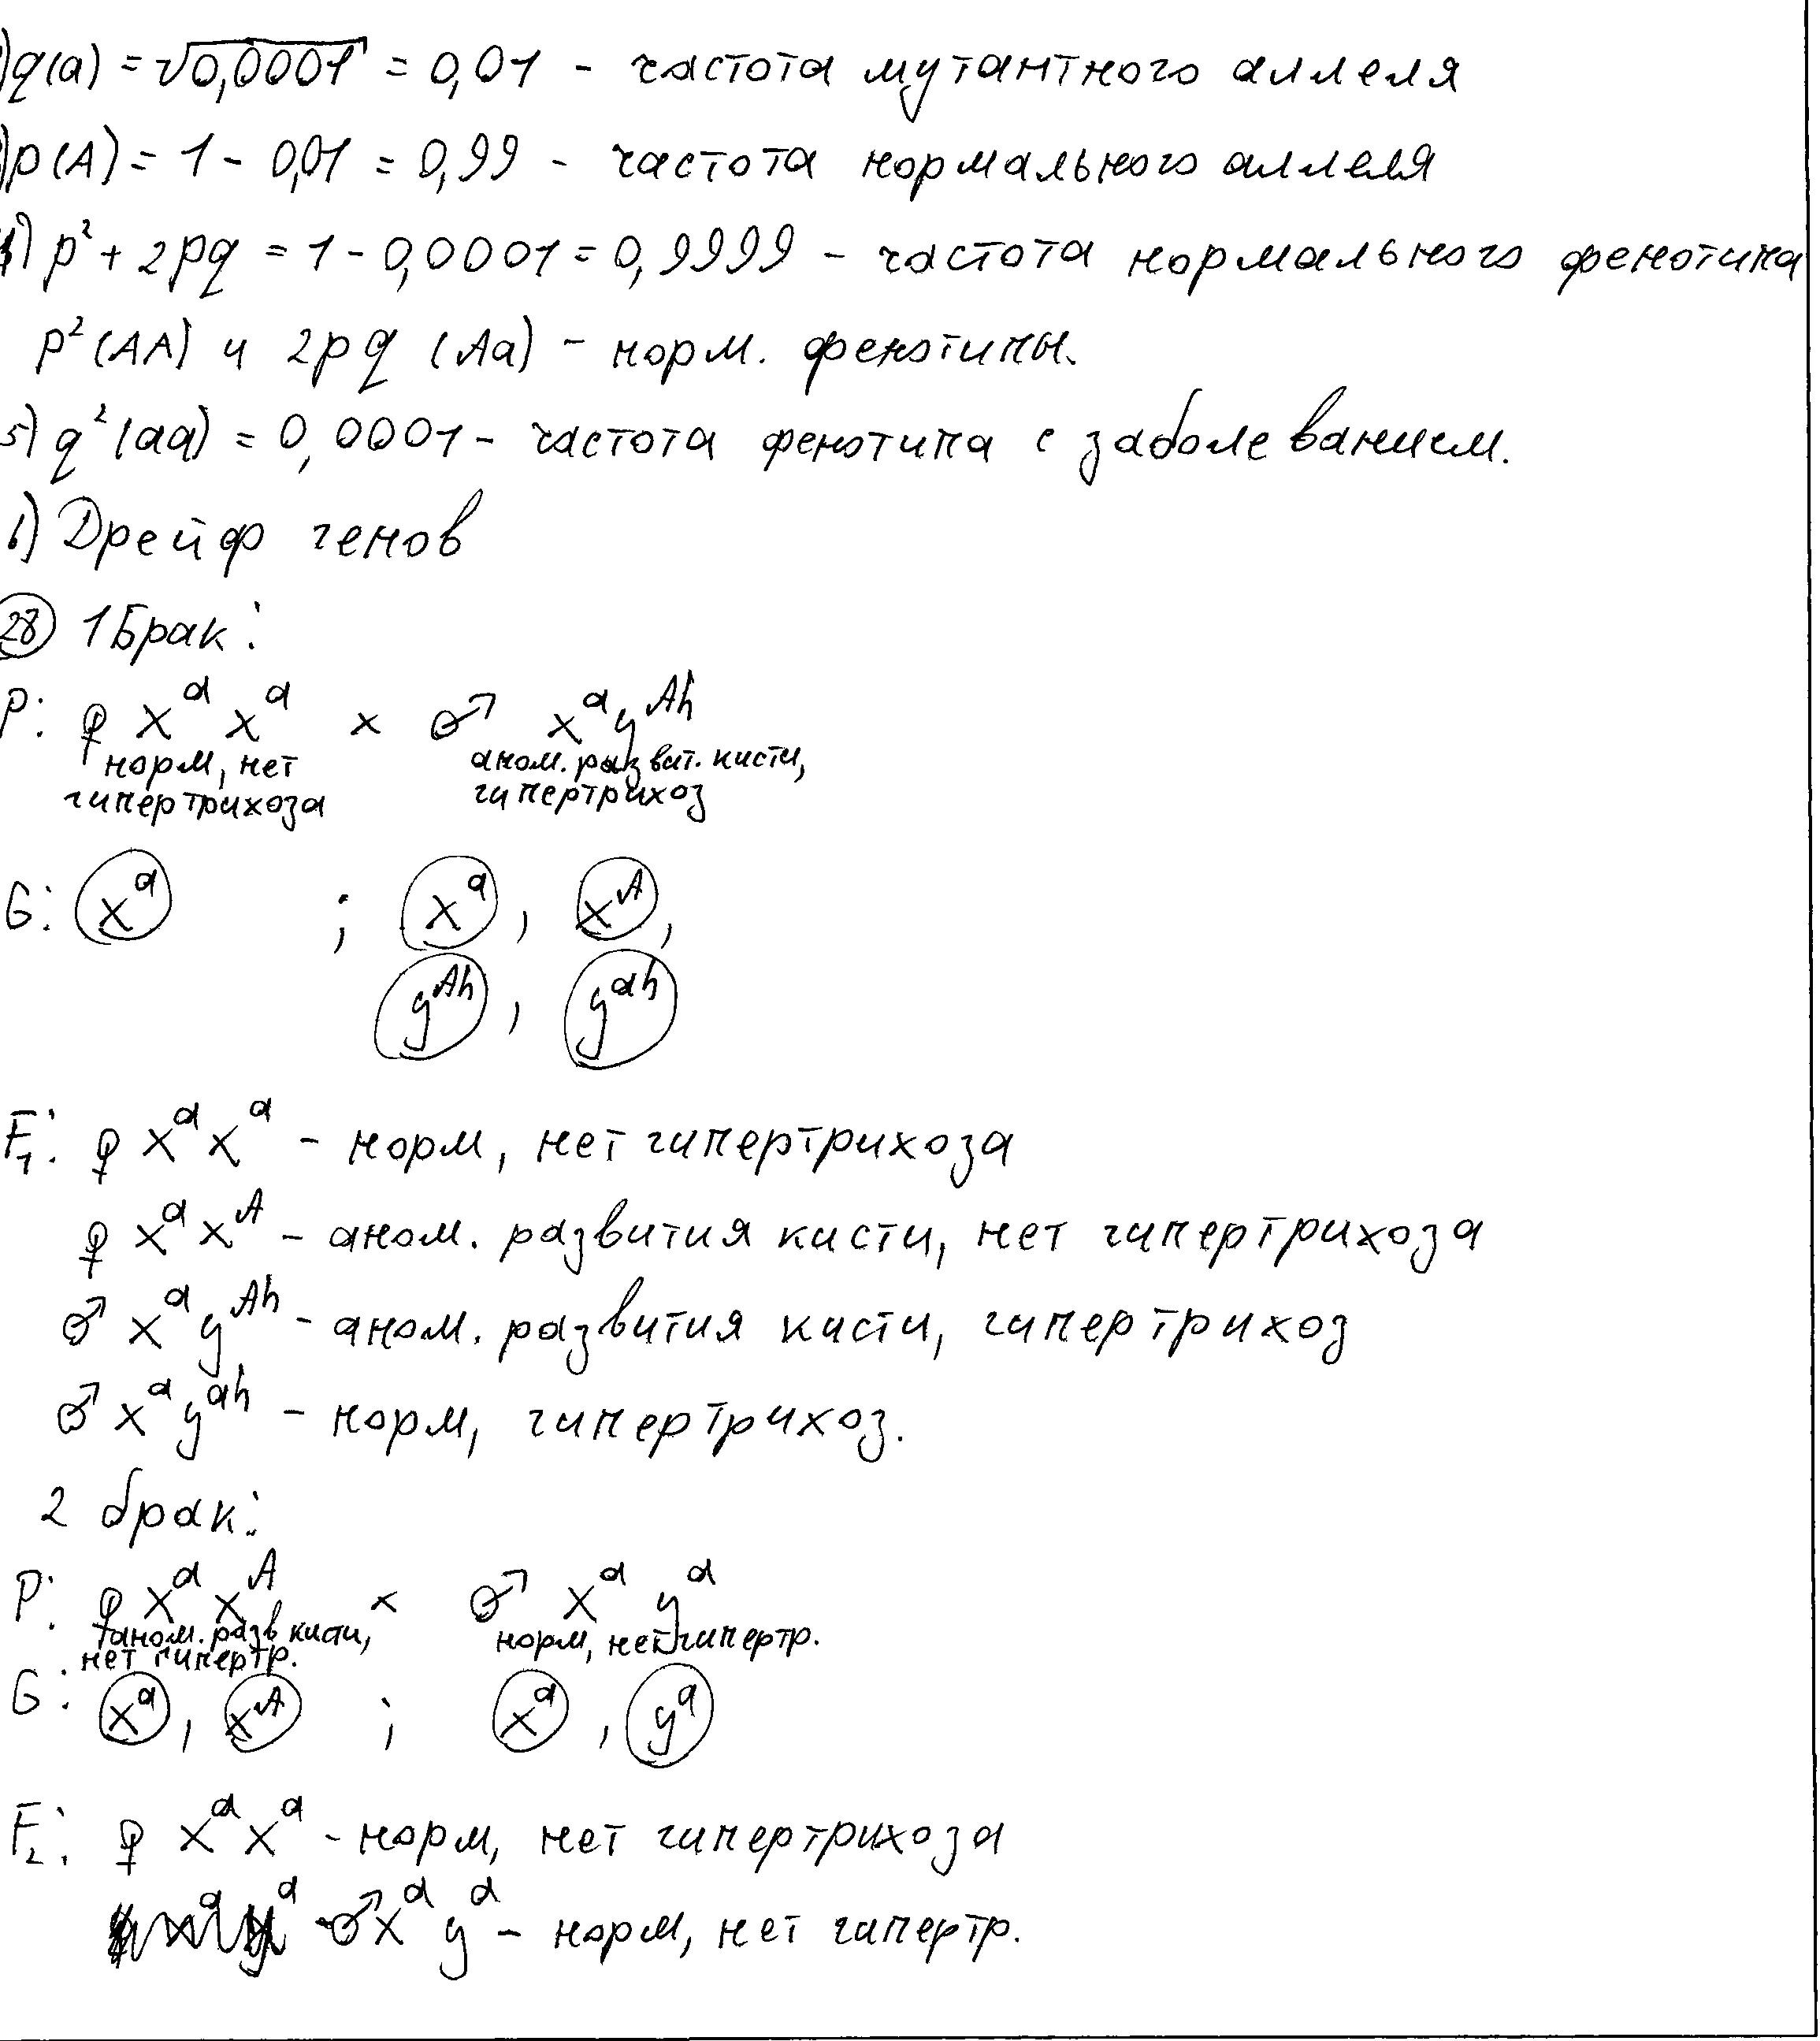 )q(a) = √0,0001 = 0,01 - частота мутантного аллеля
)p(A) = 1 - 0,01 = 0,99 - частота нормального аллеля
) p² + 2pq = 1 - 0,0001 = 0,9999 - частота нормального фенотипа
p² (AA) и 2pq (Aa) - норм. фенотипы.
5) q² (aa) = 0,0001 - частота фенотипа с заболеванием.
6) Дрейф генов
28 1 Брак:
P: ♀ XᵃXᵃ × ♂ XᵃYᴬʰ
норм, нет аном. развит. кисти,
гипертрихоза гипертрихоз
G: Xᵃ ; Xᵃ, Xᴬ,
Yᴬʰ, Yᵃʰ
F₁: ♀ XᵃXᵃ - норм, нет гипертрихоза
♀ XᵃXᴬ - аном. развития кисти, нет гипертрихоза
♂ XᵃYᴬʰ - аном. развития кисти, гипертрихоз
♂ XᵃYᵃʰ - норм, гипертрихоз.
2 брак:
P: ♀ XᵃXᴬ × ♂ XᵃYᵃ
аном. разв кисти, норм, нет гипертр.
нет гипертр.
G: Xᵃ, Xᴬ ; Xᵃ, Yᵃ
F₂: ♀ XᵃXᵃ - норм, нет гипертрихоза
♂ XᵃYᵃ - норм, нет гипертр.